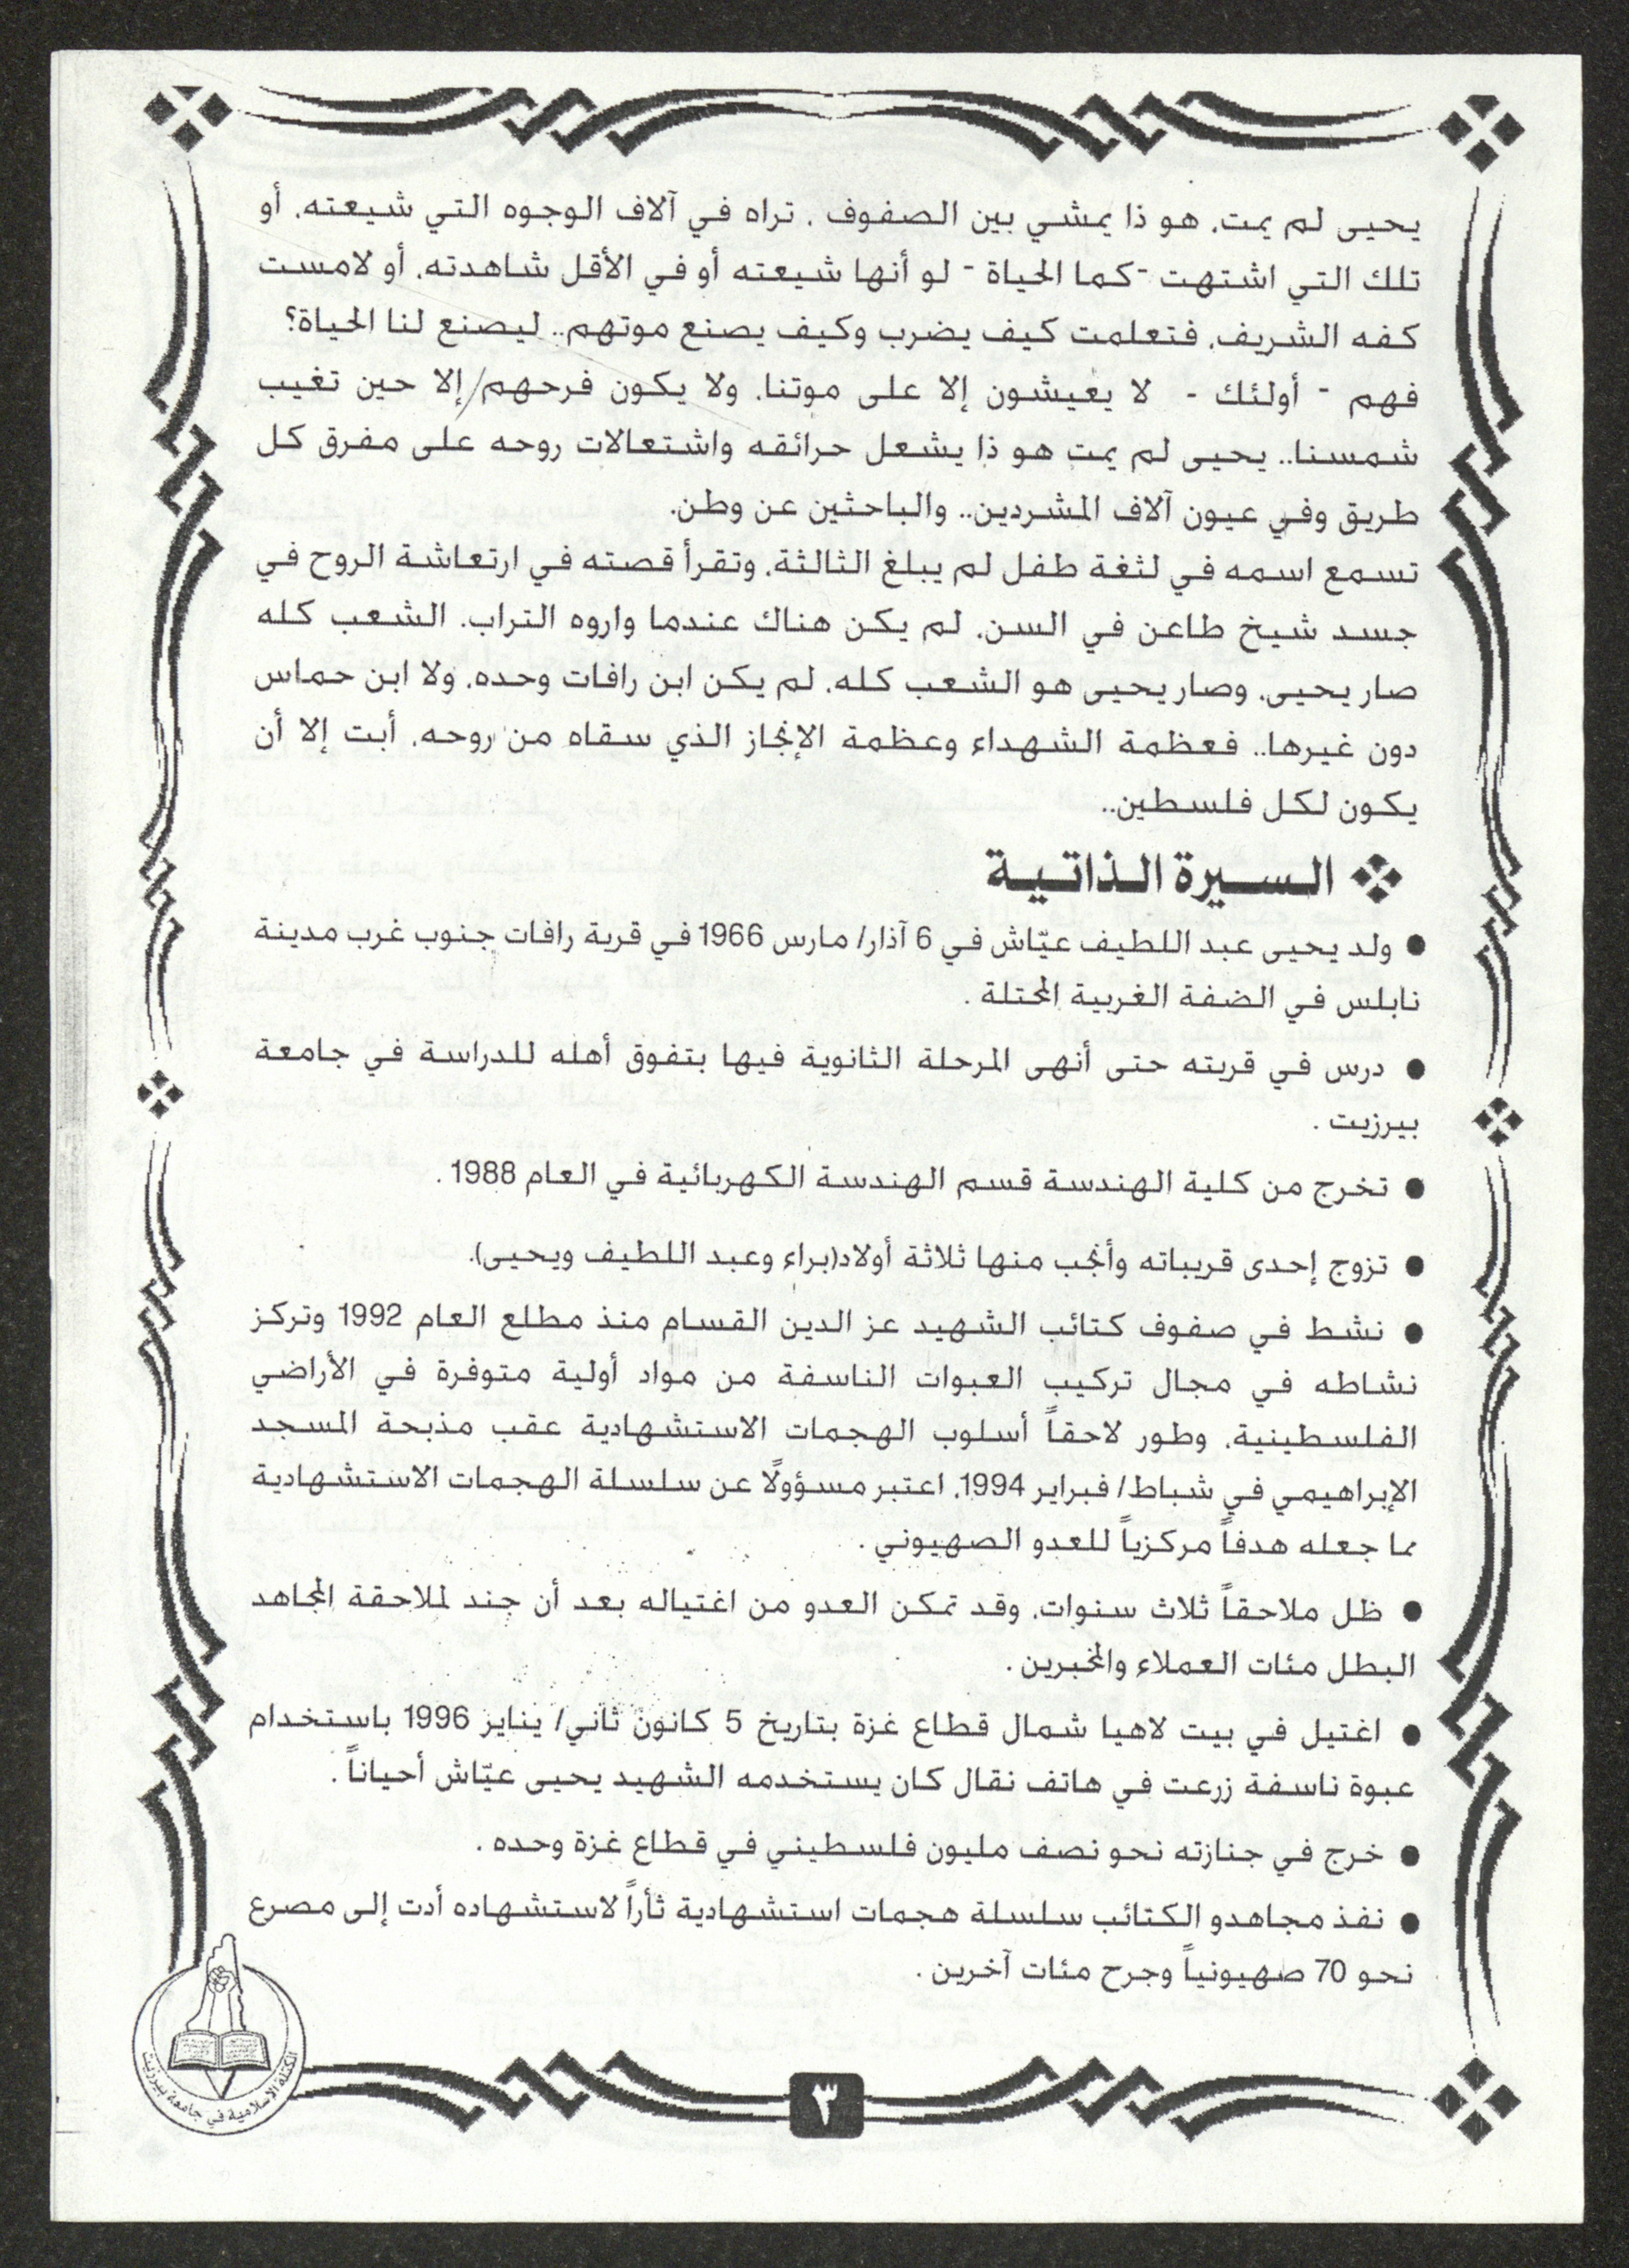 يحيى لم يمت، هو ذا يمشي بين الصفوف ، تراه في آلاف الوجوه التي شيعته، أو
تلك التي اشتهت -كما الحياة - لو أنها شيعته أو في الأقل شاهدته، أو لامست
كفه الشريف، فتعلمت كيف يضرب وكيف يصنع موتهم.. ليصنع لنا الحياة؟
فهم - أولئك - لا يعيشون إلا على موتنا، ولا يكون فرحهم/إلا حين تغيب
شمسنا.. يحيى لم يمت هو ذا يشعل حرائقه واشتعالات روحه على مفرق كل
طريق وفي عيون آلاف المشردين.. والباحثين عن وطن.
تسمع اسمه في لثغة طفل لم يبلغ الثالثة، وتقرأ قصته في ارتعاشة الروح في
جسد شيخ طاعن في السن، لم يكن هناك عندما واروه التراب. الشعب كله
صار يحيى، وصار يحيى هو الشعب كله، لم يكن ابن رافات وحده، ولا ابن حماس
دون غيرها.. فعظمة الشهداء وعظمة الإنجاز الذي سقاه من روحه، أبت إلا أن
يكون لكل فلسطين..
❖ السيرة الذاتية
● ولد يحيى عبد اللطيف عيّاش في 6 آذار/ مارس 1966 في قرية رافات جنوب غرب مدينة
نابلس في الضفة الغربية المحتلة .
● درس في قريته حتى أنهى المرحلة الثانوية فيها بتفوق أهله للدراسة في جامعة
بيرزيت .
● تخرج من كلية الهندسة قسم الهندسة الكهربائية في العام 1988 .
● تزوج إحدى قريباته وأنجب منها ثلاثة أولاد(براء وعبد اللطيف ويحيى).
● نشط في صفوف كتائب الشهيد عز الدين القسام منذ مطلع العام 1992 وتركز
نشاطه في مجال تركيب العبوات الناسفة من مواد أولية متوفرة في الأراضي
الفلسطينية، وطور لاحقاً أسلوب الهجمات الاستشهادية عقب مذبحة المسجد
الإبراهيمي في شباط/ فبراير 1994، اعتبر مسؤولًا عن سلسلة الهجمات الاستشهادية
مما جعله هدفاً مركزياً للعدو الصهيوني .
● ظل ملاحقاً ثلاث سنوات، وقد تمكن العدو من اغتياله بعد أن جند لملاحقة المجاهد
البطل مئات العملاء والمخبرين .
● اغتيل في بيت لاهيا شمال قطاع غزة بتاريخ 5 كانون ثاني/ يناير 1996 باستخدام
عبوة ناسفة زرعت في هاتف نقال كان يستخدمه الشهيد يحيى عيّاش أحياناً .
● خرج في جنازته نحو نصف مليون فلسطيني في قطاع غزة وحده .
● نفذ مجاهدو الكتائب سلسلة هجمات استشهادية ثأراً لاستشهاده أدت إلى مصرع
نحو 70 صهيونياً وجرح مئات آخرين .
الكتلة الإسلامية في جامعة بيرزيت
٣